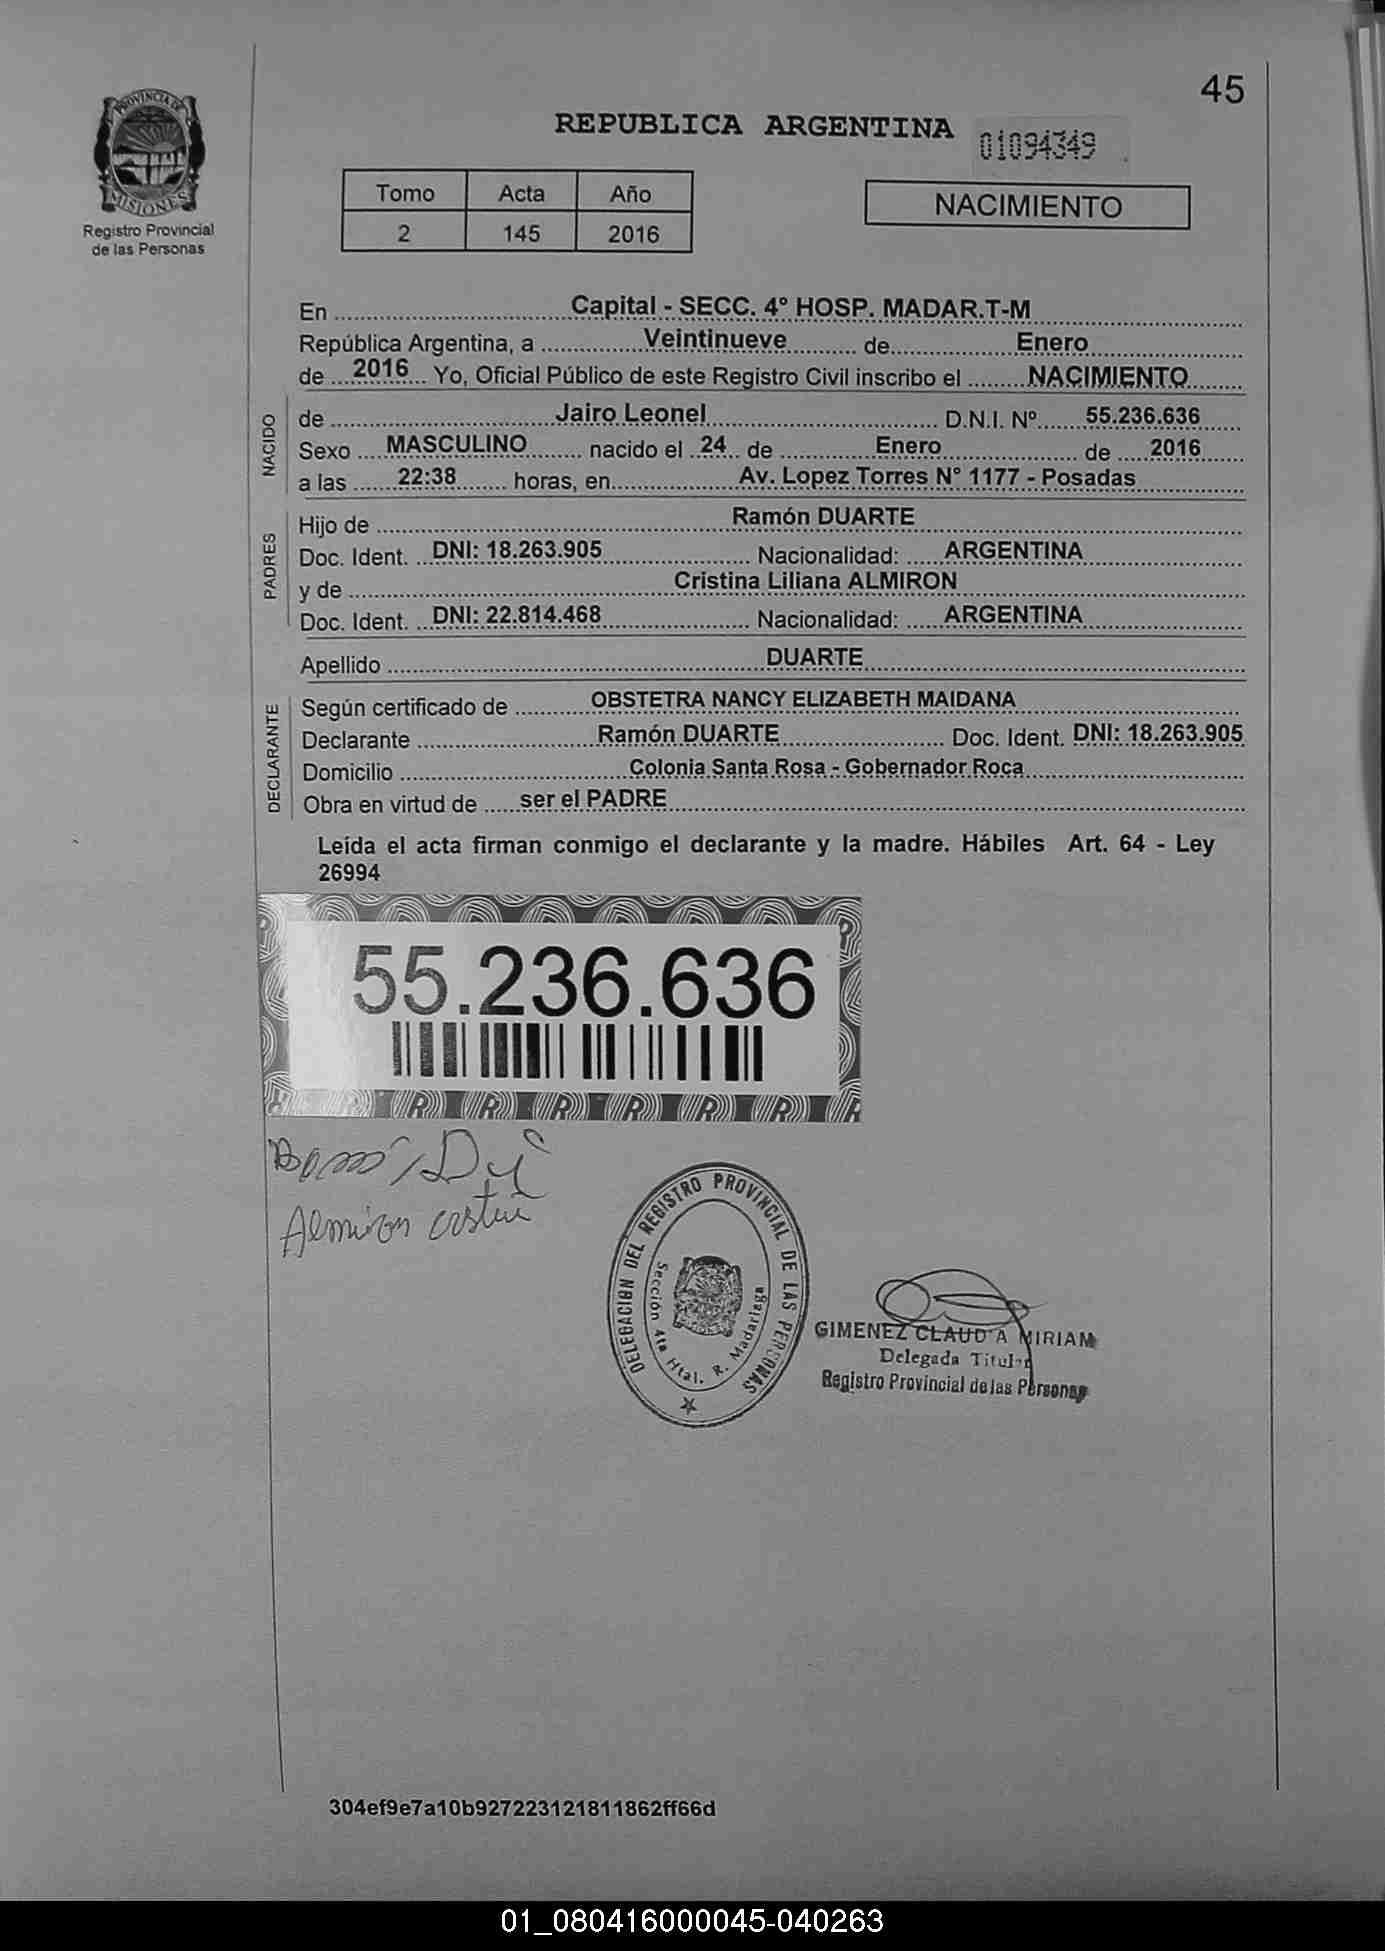 45
PROVINCIA DE
MISIONES
Registro Provincial
de las Personas
REPUBLICA ARGENTINA
01094349
Tomo Acta Año
2 145 2016
NACIMIENTO
En Capital - SECC. 4° HOSP. MADAR.T-M
República Argentina, a Veintinueve de Enero
de 2016 Yo, Oficial Público de este Registro Civil inscribo el NACIMIENTO
NACIDO
de Jairo Leonel D.N.I. Nº 55.236.636
Sexo MASCULINO nacido el 24 de Enero de 2016
a las 22:38 horas, en Av. Lopez Torres N° 1177 - Posadas
PADRES
Hijo de Ramón DUARTE
Doc. Ident. DNI: 18.263.905 Nacionalidad: ARGENTINA
y de Cristina Liliana ALMIRON
Doc. Ident. DNI: 22.814.468 Nacionalidad: ARGENTINA
Apellido DUARTE
DECLARANTE
Según certificado de OBSTETRA NANCY ELIZABETH MAIDANA
Declarante Ramón DUARTE Doc. Ident. DNI: 18.263.905
Domicilio Colonia Santa Rosa - Gobernador Roca
Obra en virtud de ser el PADRE
Leída el acta firman conmigo el declarante y la madre. Hábiles Art. 64 - Ley
26994
55.236.636
R R R R R R R
Almiron
DELEGACION DEL REGISTRO PROVINCIAL DE LAS PERSONAS
Sección 4ta Htal. R. Madariaga
GIMENEZ CLAUDIA MIRIAM
Delegada Titular
Registro Provincial de las Personas
304ef9e7a10b927223121811862ff66d
01_080416000045-040263